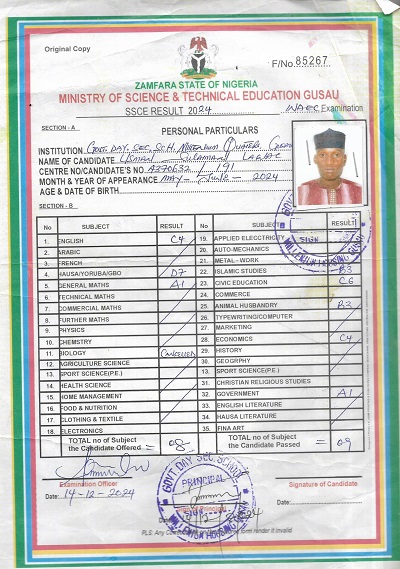 Original Copy
F/No 85267
ZAMFARA STATE OF NIGERIA
MINISTRY OF SCIENCE & TECHNICAL EDUCATION GUSAU
SSCE RESULT 2024 WAEC Examination
SECTION - A
PERSONAL PARTICULARS
INSTITUTION Govt. Day. Sec. Sch. Quarter,
NAME OF CANDIDATE Usman Sulaiman
CENTRE NO/CANDIDATE'S NO. 191
MONTH & YEAR OF APPEARANCE MAY - June - 2024
AGE & DATE OF BIRTH
SECTION - B
No SUBJECT RESULT No SUBJECT RESULT
1. ENGLISH C4 19. APPLIED ELECCTRICITY
2. ARABIC 20. AUTO-MECHANICS
3. FRENCH 21. METAL - WORK
4. HAUSA/YORUBA/GBO D7 22. ISLAMIC STUDIES B3
5. GENERAL MATHS A1 23. CIVIC EDUCATION C6
6. TECHNICAL MATHS 24. COMMERCE
7. COMMERCIAL MATHS 25. ANIMAL HUSBANDRY B3
8. FURTHER MATHS 26. TYPEWRITING/COMPUTER
9. PHYSICS 27. MARKETING
10. CHEMISTRY 28. ECONOMICS C4
11. BIOLOGY Cancelled 29. HISTORY
12. AGRICULTURE SCIENCE 30. GEOGRPHY
13. SPORT SCIENCE(P.E.) 13. SPORT SCIENCE(P.E.)
14. HEALTH SCIENCE 31. CHRISTIAN RELIGIOUS STUDIES
15. HOME MANAGEMENT 32. GOVERNMENT A1
16. FOOD & NUTRITION 33. ENGLISH LITERATURE
17. CLOTHING & TEXTILE 34. HAUSA LITERATURE
18. ELECTRONICS 35. FINA ART
TOTAL no of Subject the Candidate Offered = 08 TOTAL no of Subject the Candidate Passed = 09
Examination Officer
Date: 14-12-2024
GOVT. DAY SEC. SCHOOL
PRINCIPAL
SIGN
MILLENIUM HOUSING GUSAU
Signature of Candidate
Date:
PLS: Any form render it invalid